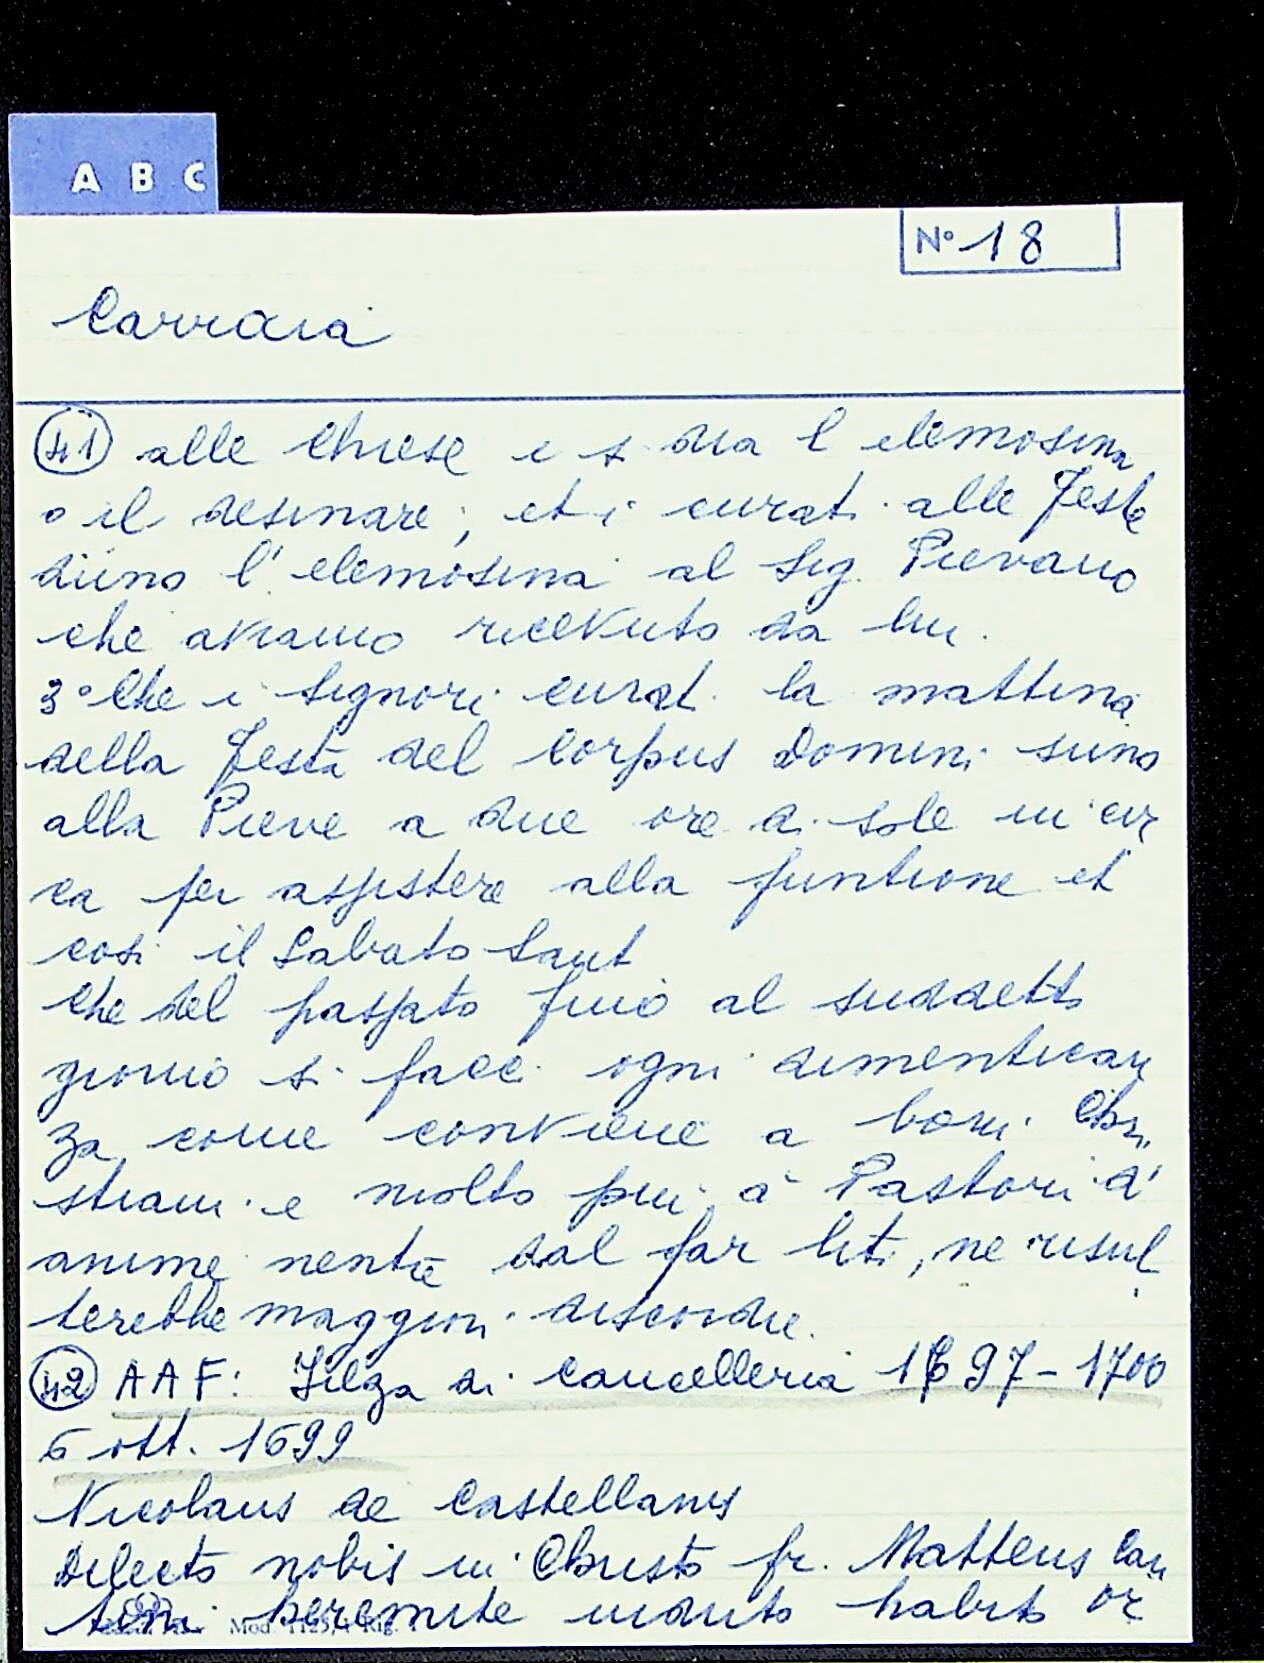 A B C
N° 18
Carraia
41 alle Chiese e si dia l elemosina
o il desinare; et i curati alle feste
diino l' elemosina al Sig. Pievano
che aviamo ricevuto da lui.
3° Che i Signori curati la mattina
della festa del Corpus Domini siino
alla Pieve a due ore di sole in cir
ca per assistere alla funtione et
cosi il Sabato Sant
Che del passato fino al suddetto
giorno si facci ogni dimentican
za come conviene a boni Chri
stiani e molto più a Pastori d'
anime mentre dal far liti, ne risul
terebbe maggiori discordie.
42 AAF: Filza di Cancelleria 1697-1700
6 ott. 1699
Nicolaus de Castellanis
Dilecto nobis in Christo fr. Matteus Can
tini heremite induto habito or
Mod. 1125/1 Rig.